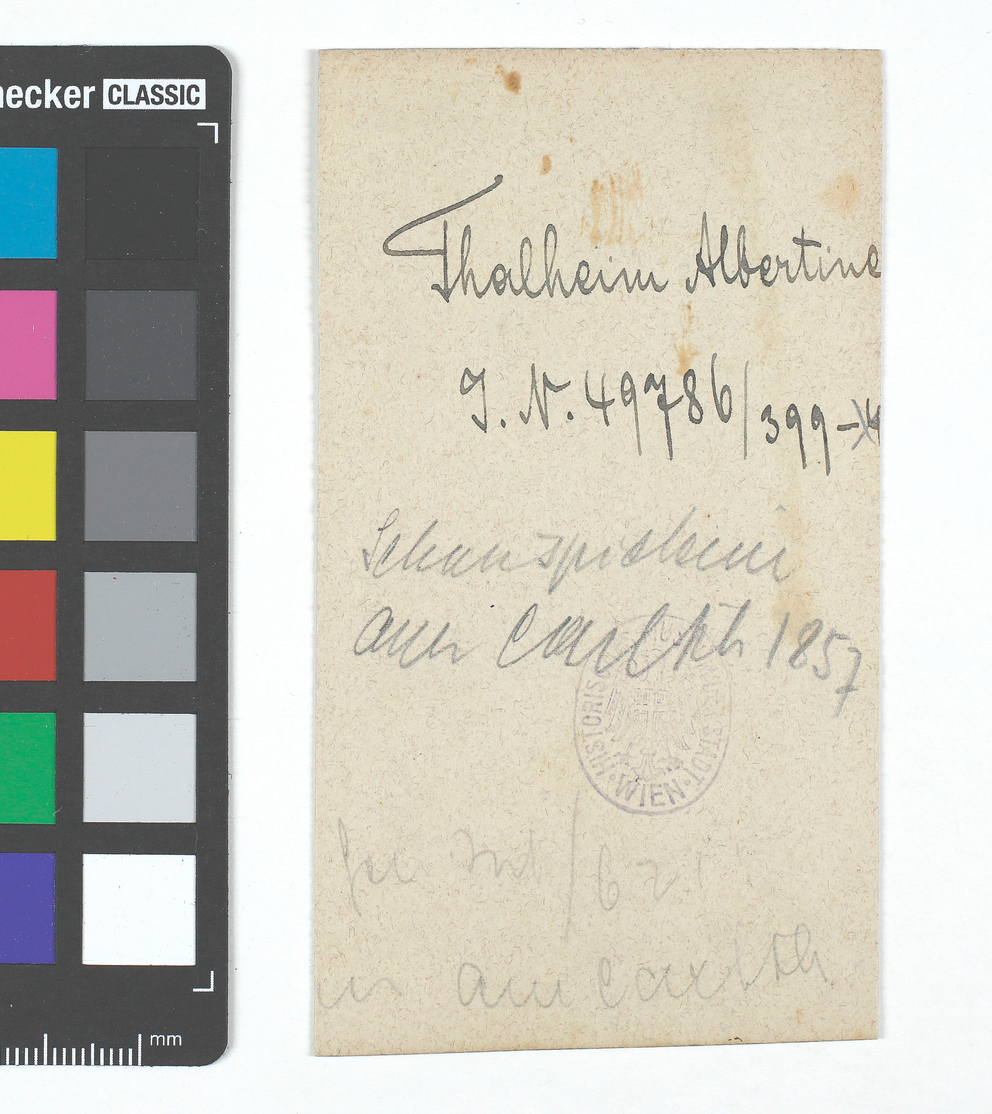 hecker CLASSIC
mm
Thalheim Albertine
J. N. 49786/399-
Schauspielerin
am Carlth 1857
HISTORIS STADT WIEN
/62
am Carlth